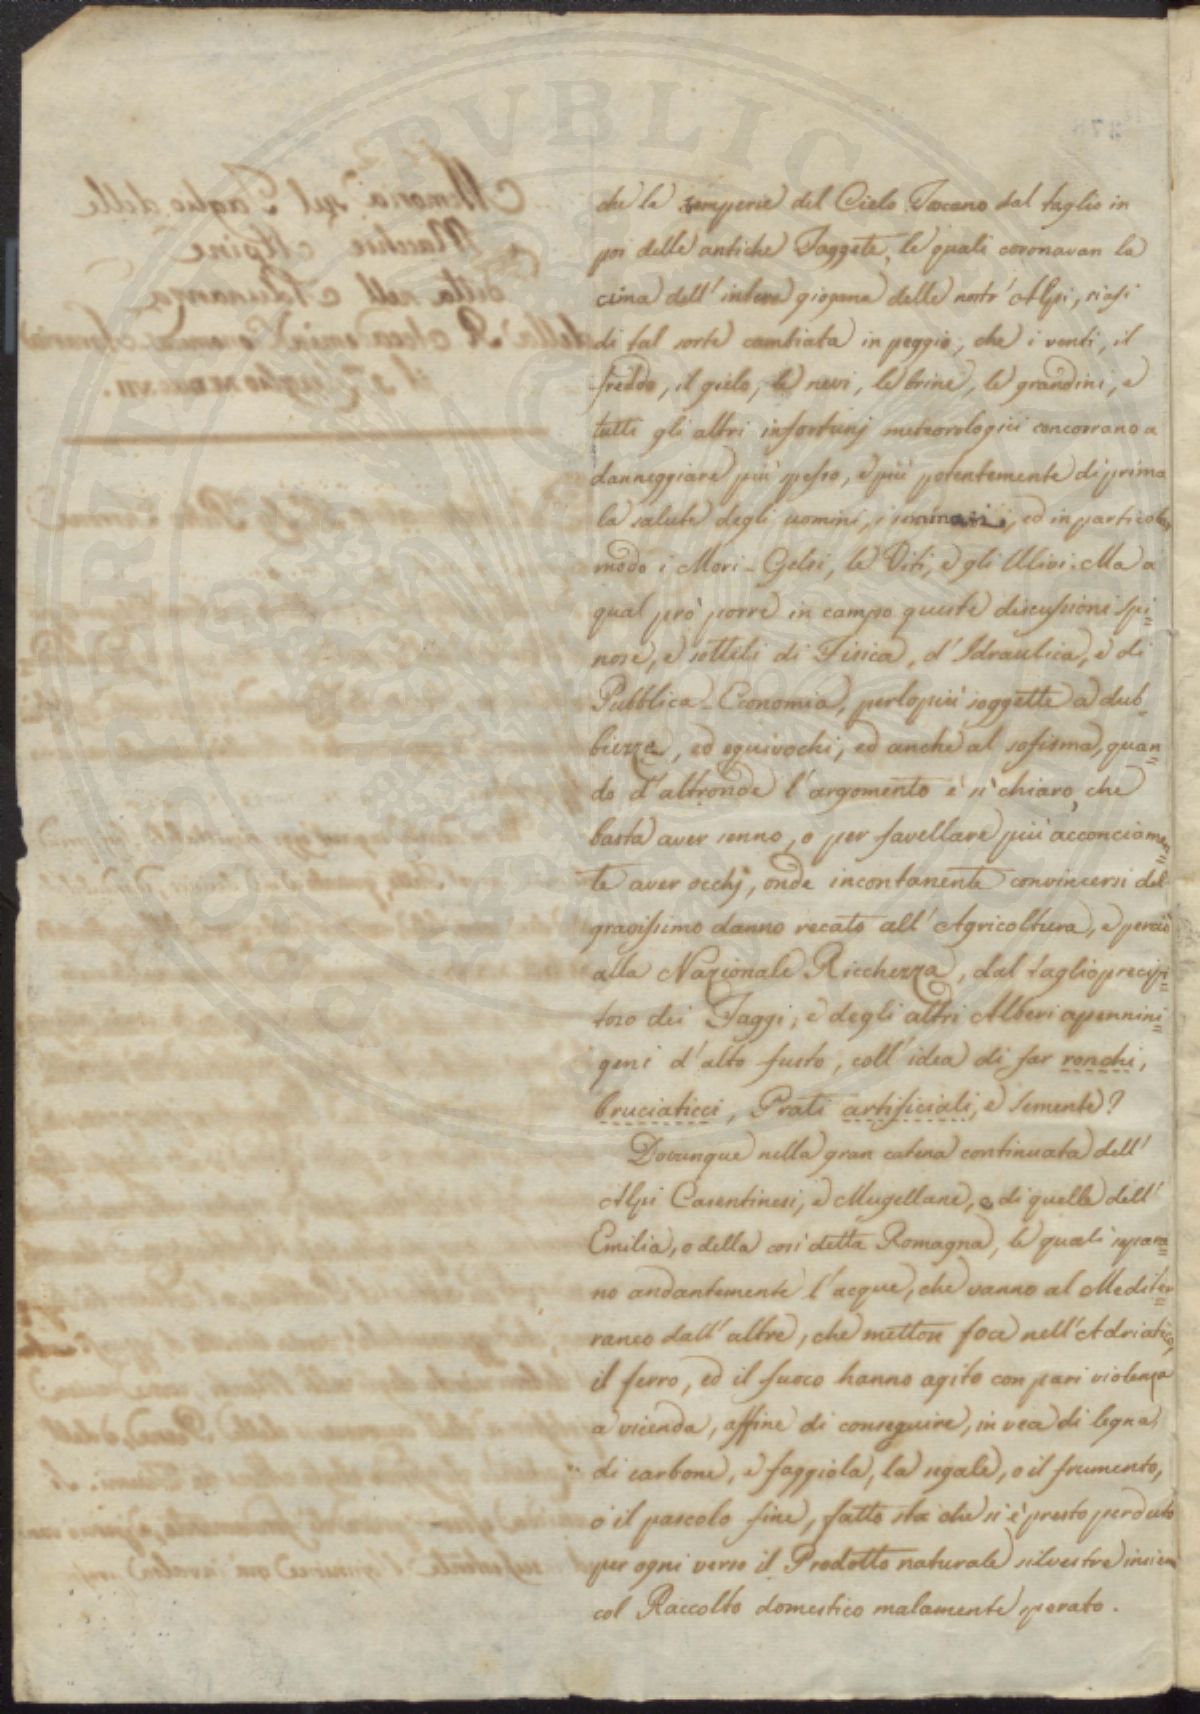 che la temperie del Cielo Toscano dal taglio in
poi delle antiche Faggete, le quali coronavan la
cima dell' intera giogana delle nostr' Alpi, siasi
di tal sorte cambiata in peggio, che i venti, il
freddo, il gielo, le nevi, le brine, le grandini, e
tutti gli altri infortunj meteorologici concorrano a
danneggiare più spesso, e più potentemente di prima
la salute degli uomini, i seminati, ed in particolar
modo i Mori-Gelsi, le Viti, e gli Ulivi. Ma a
qual prò porre in campo queste discussioni spi=
nose, e sottili di Fisica, d' Idraulica, e di
Pubblica-Economia, perlopiù soggette a dub=
biezze, ed equivochi, ed anche al sofisma, quan=
do d' altronde l' argomento è sì chiaro, che
basta aver senno, o per favellare più acconciamen=
te aver occhj, onde incontanente convincersi del
gravissimo danno recato all' Agricoltura, e perciò
alla Nazionale Ricchezza, dal taglio precipi=
toso dei Faggi, e degli altri Alberi apennini=
geni d' alto fusto, coll' idea di far ronchi,
bruciaticci, Prati artificiali, e Semente?
Dovunque nella gran catena continuata dell'
Alpi Casentinesi, e Mugellane, e di quelle dell'
Emilia, o della così detta Romagna, le quali separa=
no andantemente l' acque, che vanno al Mediter=
raneo dall' altre, che metton foce nell' Adriatico,
il ferro, ed il fuoco hanno agito con pari violenza
a vicenda, affine di conseguire, in vece di legna,
di carbone, e faggiola, la segale, o il frumento,
o il pascolo fine, fatto sta che si è presto perduto
per ogni verso il Prodotto naturale silvestre insiem
col Raccolto domestico malamente sperato.